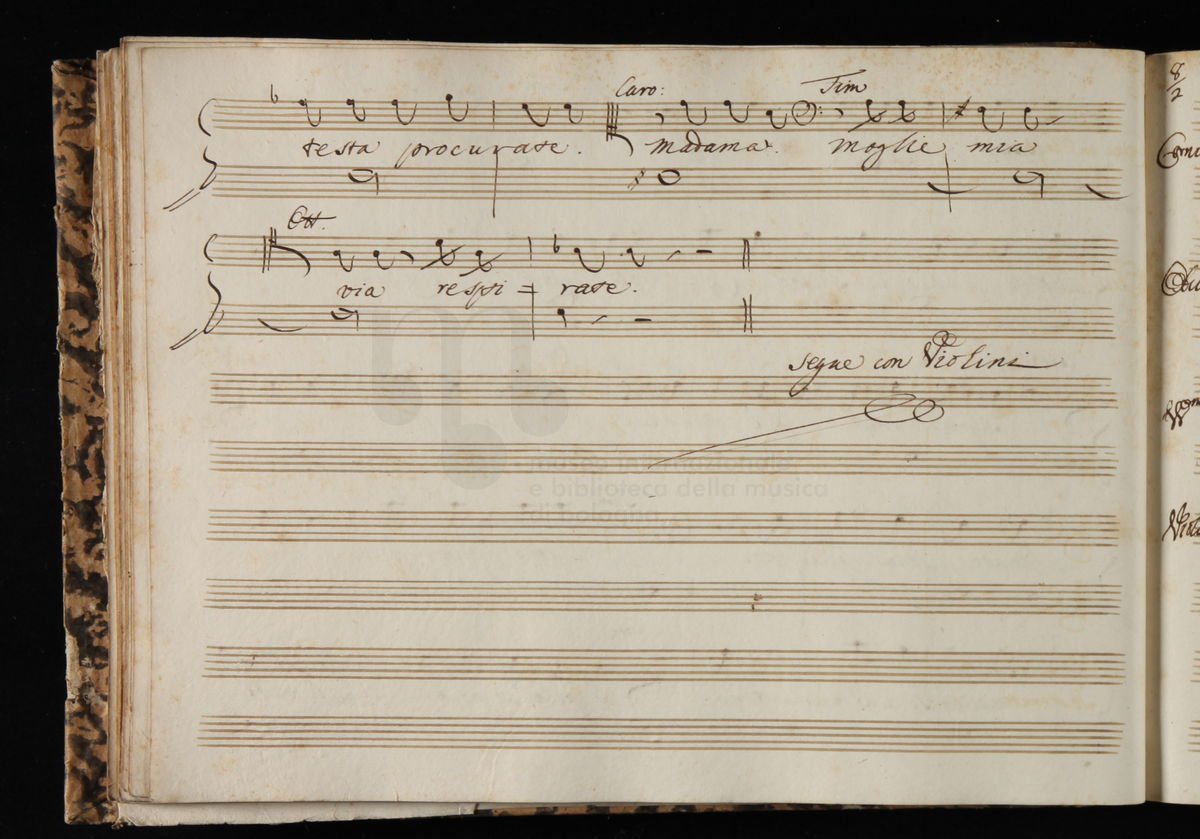 Caro: Tim
testa procurate. Madama. moglie mia
Ott.
via respi = rate.
segue con Violini
museo internazionale
e biblioteca della musica
di bologna
8
2